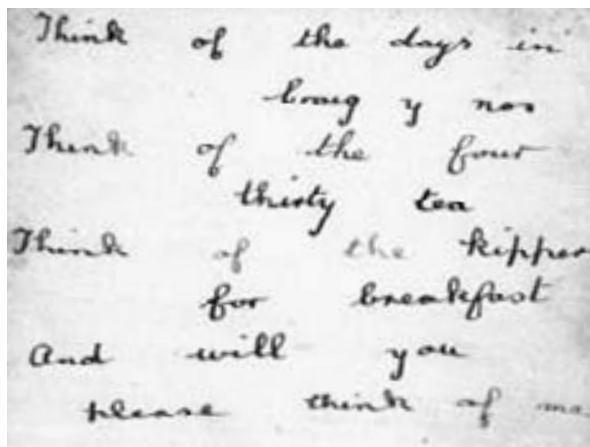 Think of the days in
braig y nos
Think of the four
thirty tea
Think of the kipper
for breakfast
And will you
please think of me